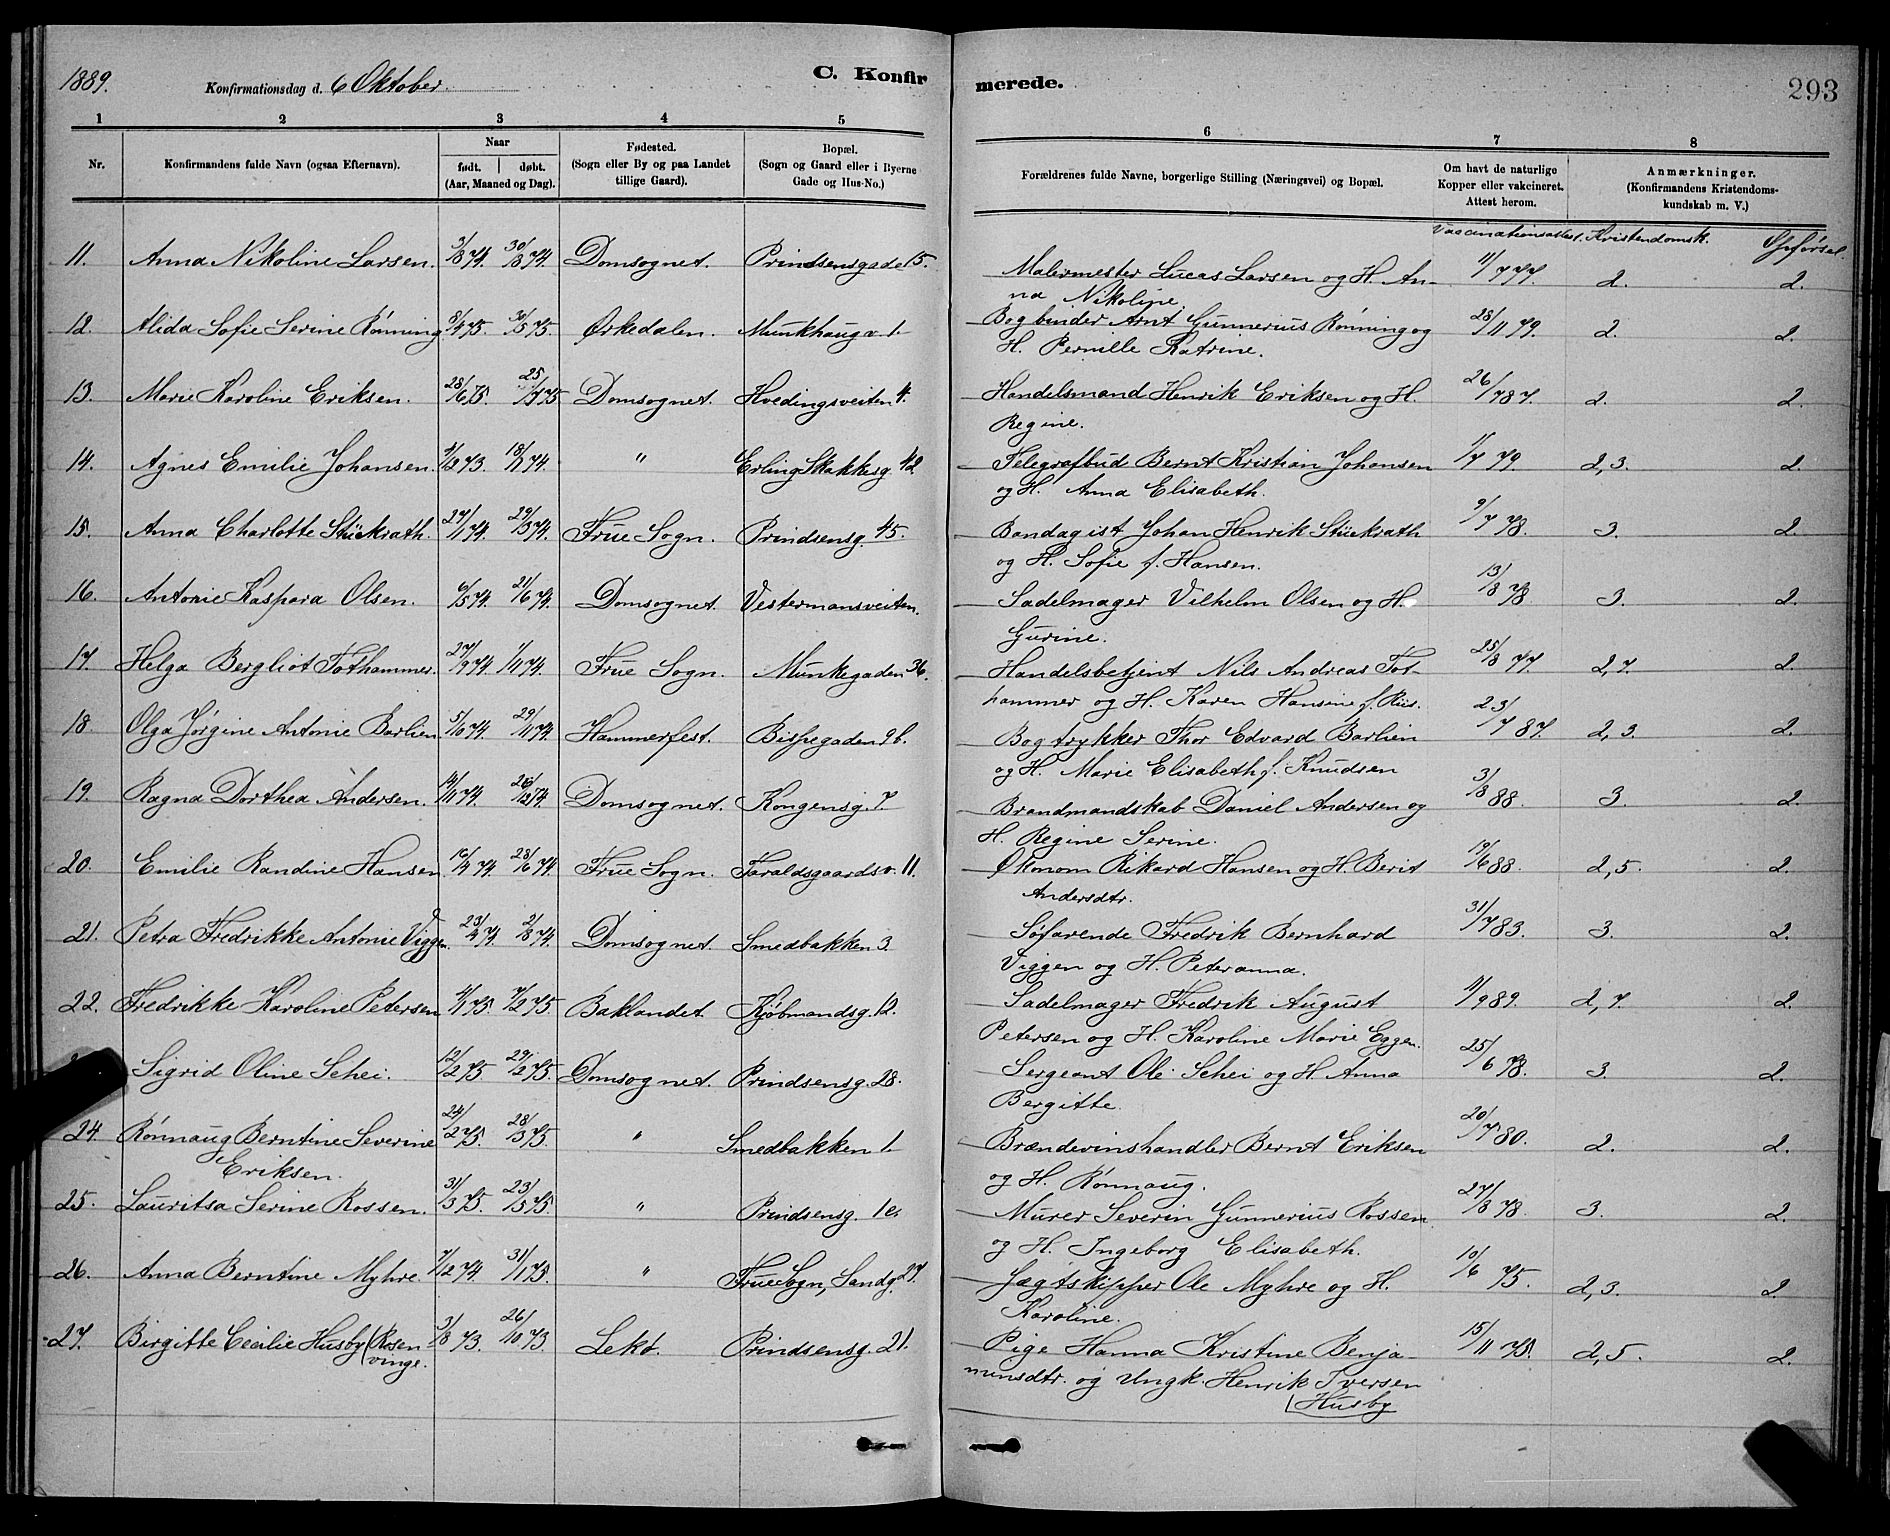 1889. Konfirmationsdag d. 6 Oktober. C. Konfirmerede. 293
1 2 3 4 5 6 7 8
Nr. Konfirmandens fulde Navn (ogsaa Efternavn). Naar født. døbt. (Aar, Maaned og Dag). Fødested. (Sogn eller By og paa Landet tillige Gaard). Bopæl. (Sogn og Gaard eller i Byerne Gade og Hus-No.) Forældrenes fulde Navne, borgerlige Stilling (Næringsvei) og Bopæl. Om havt de naturlige Kopper eller vakcineret. Attest herom. Anmærkninger. (Konfirmandens Kristendomskundskab m. V.)
Vaccinationsattest. Kristendomsk. Opførsel.
11. Anna Nikoline Larsen. 3/8 74. 30/8 74. Domsognet. Prindsensgade 15. Malermester Lucas Larsen og H. An- 11/7 77. 2. 2.
na Nikoline.
12. Alida Sofie Serine Rønning 8/4 75. 30/5 75. Ørkedalen. Munkhaugv. 1. Bogbinder Arnt Gunnerius Rønning og 28/11 79. 2. 2.
H. Pernille Katrine.
13. Marie Karoline Eriksen. 28/6 75. 25/7 75 Domsognet. Hvedingsveiten 4. Handelsmand Henrik Eriksen og H. 26/7 87. 2. 2.
Regine.
14. Agnes Emilie Johansen. /12 73. 18/1 74. " Erling Skakkesg. 42. Telegrafbud Bernt Kristian Johansen /7 79. 2,3. 2.
og H. Anna Elisabeth.
15. Anna Charlotte Stückrath. 27/1 74. 29/3 74. Frue Sogn. Prindsensg. 45. Bandagist Johan Henrik Stückrath 9/7 78. 3. 2.
og H. Sofie f. Hansen.
16. Antonie Kaspara Olsen. 6/5 74. 21/6 74. Domsognet. Vestermansveiten. Sadelmager Vilhelm Olsen og H. 13/8 78. 3. 2.
Gurine.
17. Helga Bergliot Tothammer. 27/9 74. 1/11 74. Frue Sogn. Munkegaden 36. Handelsbetjent Nils Andreas Tot- 25/8 77. 2,7. 2.
hammer og H. Karen Hansine f. Riis.
18. Olga Jørgine Antonie Barlien 5/10 74. 29/11 74. Hammerfest. Bispegaden 9b. Bogtrykker Thor Edvard Barlien 23/7 87. 2,3. 2.
og H. Marie Elisabeth f. Knudsen
19. Ragna Dorthea Andersen. 14/11 74. 26/12 74. Domsognet. Kongensg. 7. Brandmandskab Daniel Andersen og 3/8 88. 3. 2.
H. Regine Serine.
20. Emilie Randine Hansen 16/4 74. 28/6 74. Frue Sogn. Taraldsgaardsv. 11. Økonom Rikard Hansen og H. Berit 19/6 88. 2,5. 2.
Andersdtr.
21. Petra Fredrikke Antonie Viggen. 23/4 74. 2/8 74. Domsognet. Smedbakken 3. Søfarende Fredrik Bernhard 31/7 83. 3. 2.
Viggen og H. Peteranna.
22. Fredrikke Karoline Petersen /1 75. 7/2 75. Baklandet. Kjøbmandsg. 12. Sadelmager Fredrik August 11/9 89. 2,7. 2.
Petersen og H. Karoline Marie Eggen.
Sigrid Oline Schei. 12/2 75. 29/2 75. Domsognet. Prindsensg. 28. Sergeant Ole Schei og H. Anna 25/6 78. 3. 2.
Bergitte.
24. Rønnaug Berntine Severine 24/2 75. 28/3 75. " Smedbakken 1. Brændevinshandler Bernt Eriksen 20/7 80. 2. 2.
Eriksen. og H. Rønnaug.
25. Lauritsa Serine Rossen. 31/3 75. 23/5 75 " Prindsensg. 1c. Murer Severin Gunnerius Rossen 27/8 78. 3. 2.
og H. Ingeborg Elisabeth.
26. Anna Berntine Myhre. 7/12 74. 31/1 75. " Frue Sogn, Sandg. 27. Jægtskipper Ole Myhre og H. 10/6 75. 2,3. 2.
Karoline.
27. Birgitte Cecilie Husby (Rosen- 3/8 73. 26/10 73. Lekø. Prindsensg. 21. Pige Hanna Kristine Benja- 15/11 75. 2,5. 2.
vinge. minsdtr. og Ungk. Henrik Iversen
Husby